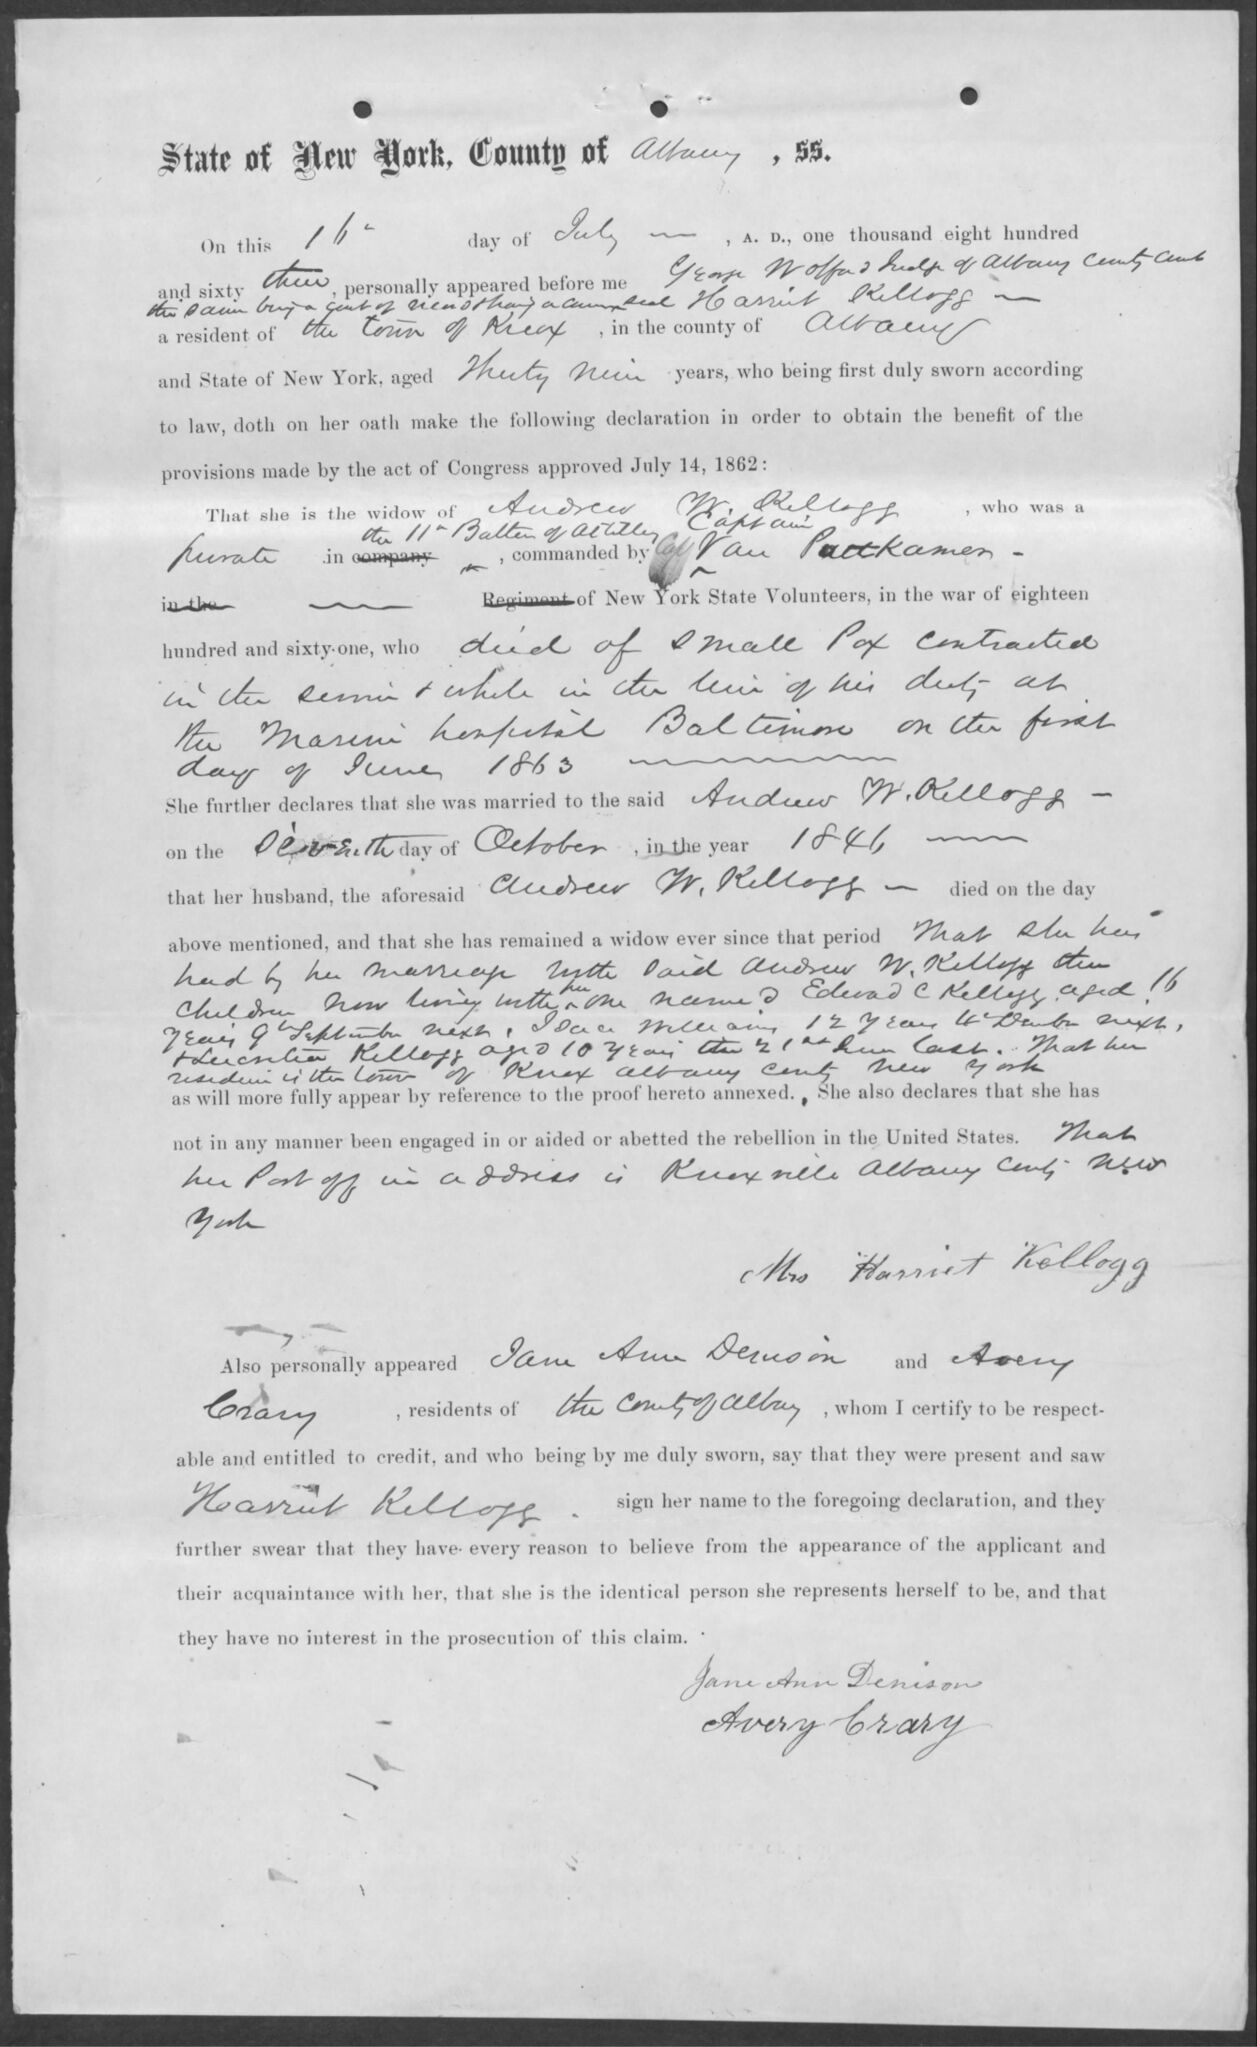 State of New York, County of Albany, ss.
On this 16th day of July, A. D., one thousand eight hundred
and sixty three, personally appeared before me George Wolford Judge of Albany County Court
the same being a Court of record & having a common seal Harriet Kellogg
a resident of the town of Knox, in the county of Albany
and State of New York, aged Thirty nine years, who being first duly sworn according
to law, doth on her oath make the following declaration in order to obtain the benefit of the
provisions made by the act of Congress approved July 14, 1862:
That she is the widow of Andrew W. Kellogg, who was a
the 11th Battery of Artillery Captain
private in company, commanded by Van Puttkamer
in the Regiment of New York State Volunteers, in the war of eighteen
hundred and sixty-one, who died of Small Pox contracted
in the service & while in the line of his duty at
the Marine hospital Baltimore on the first
day of June 1863
She further declares that she was married to the said Andrew W. Kellogg
on the Seventh day of October, in the year 1846
that her husband, the aforesaid Andrew W. Kellogg died on the day
above mentioned, and that she has remained a widow ever since that period That she has
had by her marriage with said Andrew W. Kellogg three
children now living with her one named Edward C Kellogg aged 16
years 9th September next, Isaac William 12 years 4th December next,
& Lucretia Kellogg aged 10 years the 21st June last. That her
residence is the town of Knox Albany County New York
as will more fully appear by reference to the proof hereto annexed. She also declares that she has
not in any manner been engaged in or aided or abetted the rebellion in the United States. That
her Post office address is Knoxville Albany County New
York
Mrs Harriet Kellogg
Also personally appeared Jane Ann Denison and Avery
Crary, residents of the County of Albany, whom I certify to be respect-
able and entitled to credit, and who being by me duly sworn, say that they were present and saw
Harriet Kellogg. sign her name to the foregoing declaration, and they
further swear that they have every reason to believe from the appearance of the applicant and
their acquaintance with her, that she is the identical person she represents herself to be, and that
they have no interest in the prosecution of this claim.
Jane Ann Denison
Avery Crary